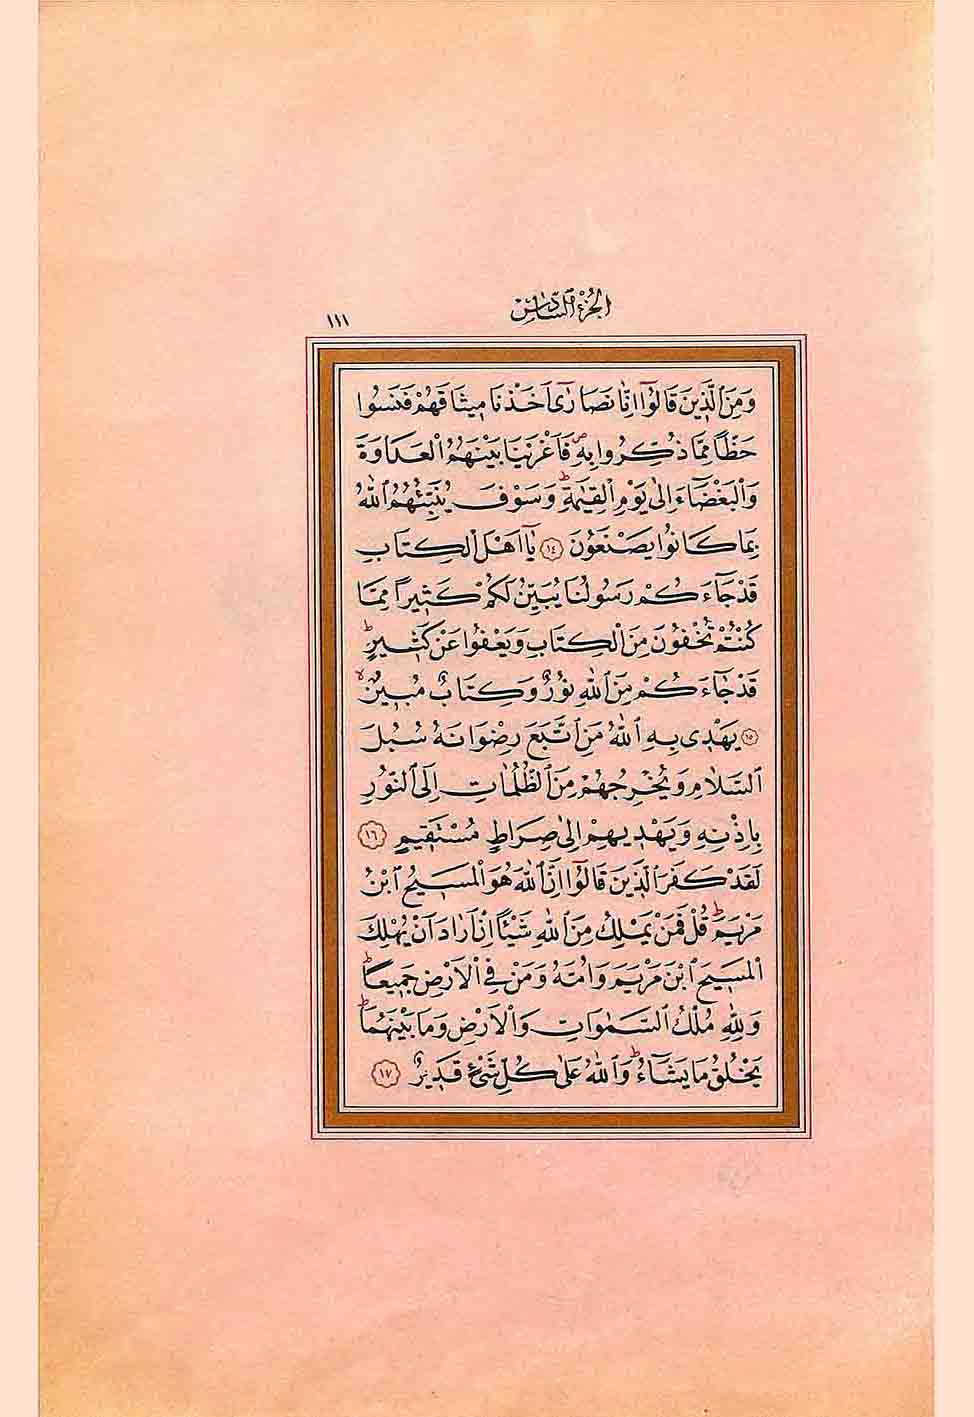 الجزء السادس
١١١
وَمِنَ الَّذِينَ قَالُوٓا اِنَّا نَصَارٰٓى اَخَذْنَا مِيثَاقَهُمْ فَنَسُوا
حَظًّا مِمَّا ذُكِّرُوا بِهِۖ فَاَغْرَيْنَا بَيْنَهُمُ الْعَدَاوَةَ
وَالْبَغْضَٓاءَ اِلٰى يَوْمِ الْقِيٰمَةِۜ وَسَوْفَ يُنَبِّئُهُمُ اللّٰهُ
بِمَا كَانُوا يَصْنَعُونَ ١٤ يَٓا اَهْلَ الْكِتَابِ
قَدْ جَٓاءَكُمْ رَسُولُنَا يُبَيِّنُ لَكُمْ كَثِيرًا مِمَّا
كُنْتُمْ تُخْفُونَ مِنَ الْكِتَابِ وَيَعْفُوا عَنْ كَثِيرٍۜ
قَدْ جَٓاءَكُمْ مِنَ اللّٰهِ نُورٌ وَكِتَابٌ مُبِينٌۙ
١٥ يَهْدِى بِهِ اللّٰهُ مَنِ اتَّبَعَ رِضْوَانَهُ سُبُلَ
السَّلَامِ وَيُخْرِجُهُمْ مِنَ الظُّلُمَاتِ اِلَى النُّورِ
بِاِذْنِهِ وَيَهْدِيهِمْ اِلٰى صِرَاطٍ مُسْتَقِيمٍ ١٦
لَقَدْ كَفَرَ الَّذِينَ قَالُوٓا اِنَّ اللّٰهَ هُوَ الْمَسِيحُ ابْنُ
مَرْيَمَۜ قُلْ فَمَنْ يَمْلِكُ مِنَ اللّٰهِ شَيْـًٔا اِنْ اَرَادَ اَنْ يُهْلِكَ
الْمَسِيحَ ابْنَ مَرْيَمَ وَاُمَّهُ وَمَنْ فِى الْاَرْضِ جَمِيعًاۜ
وَلِلّٰهِ مُلْكُ السَّمٰوَاتِ وَالْاَرْضِ وَمَا بَيْنَهُمَاۜ
يَخْلُقُ مَا يَشَٓاءُۜ وَاللّٰهُ عَلٰى كُلِّ شَىْءٍ قَدِيرٌ ١٧